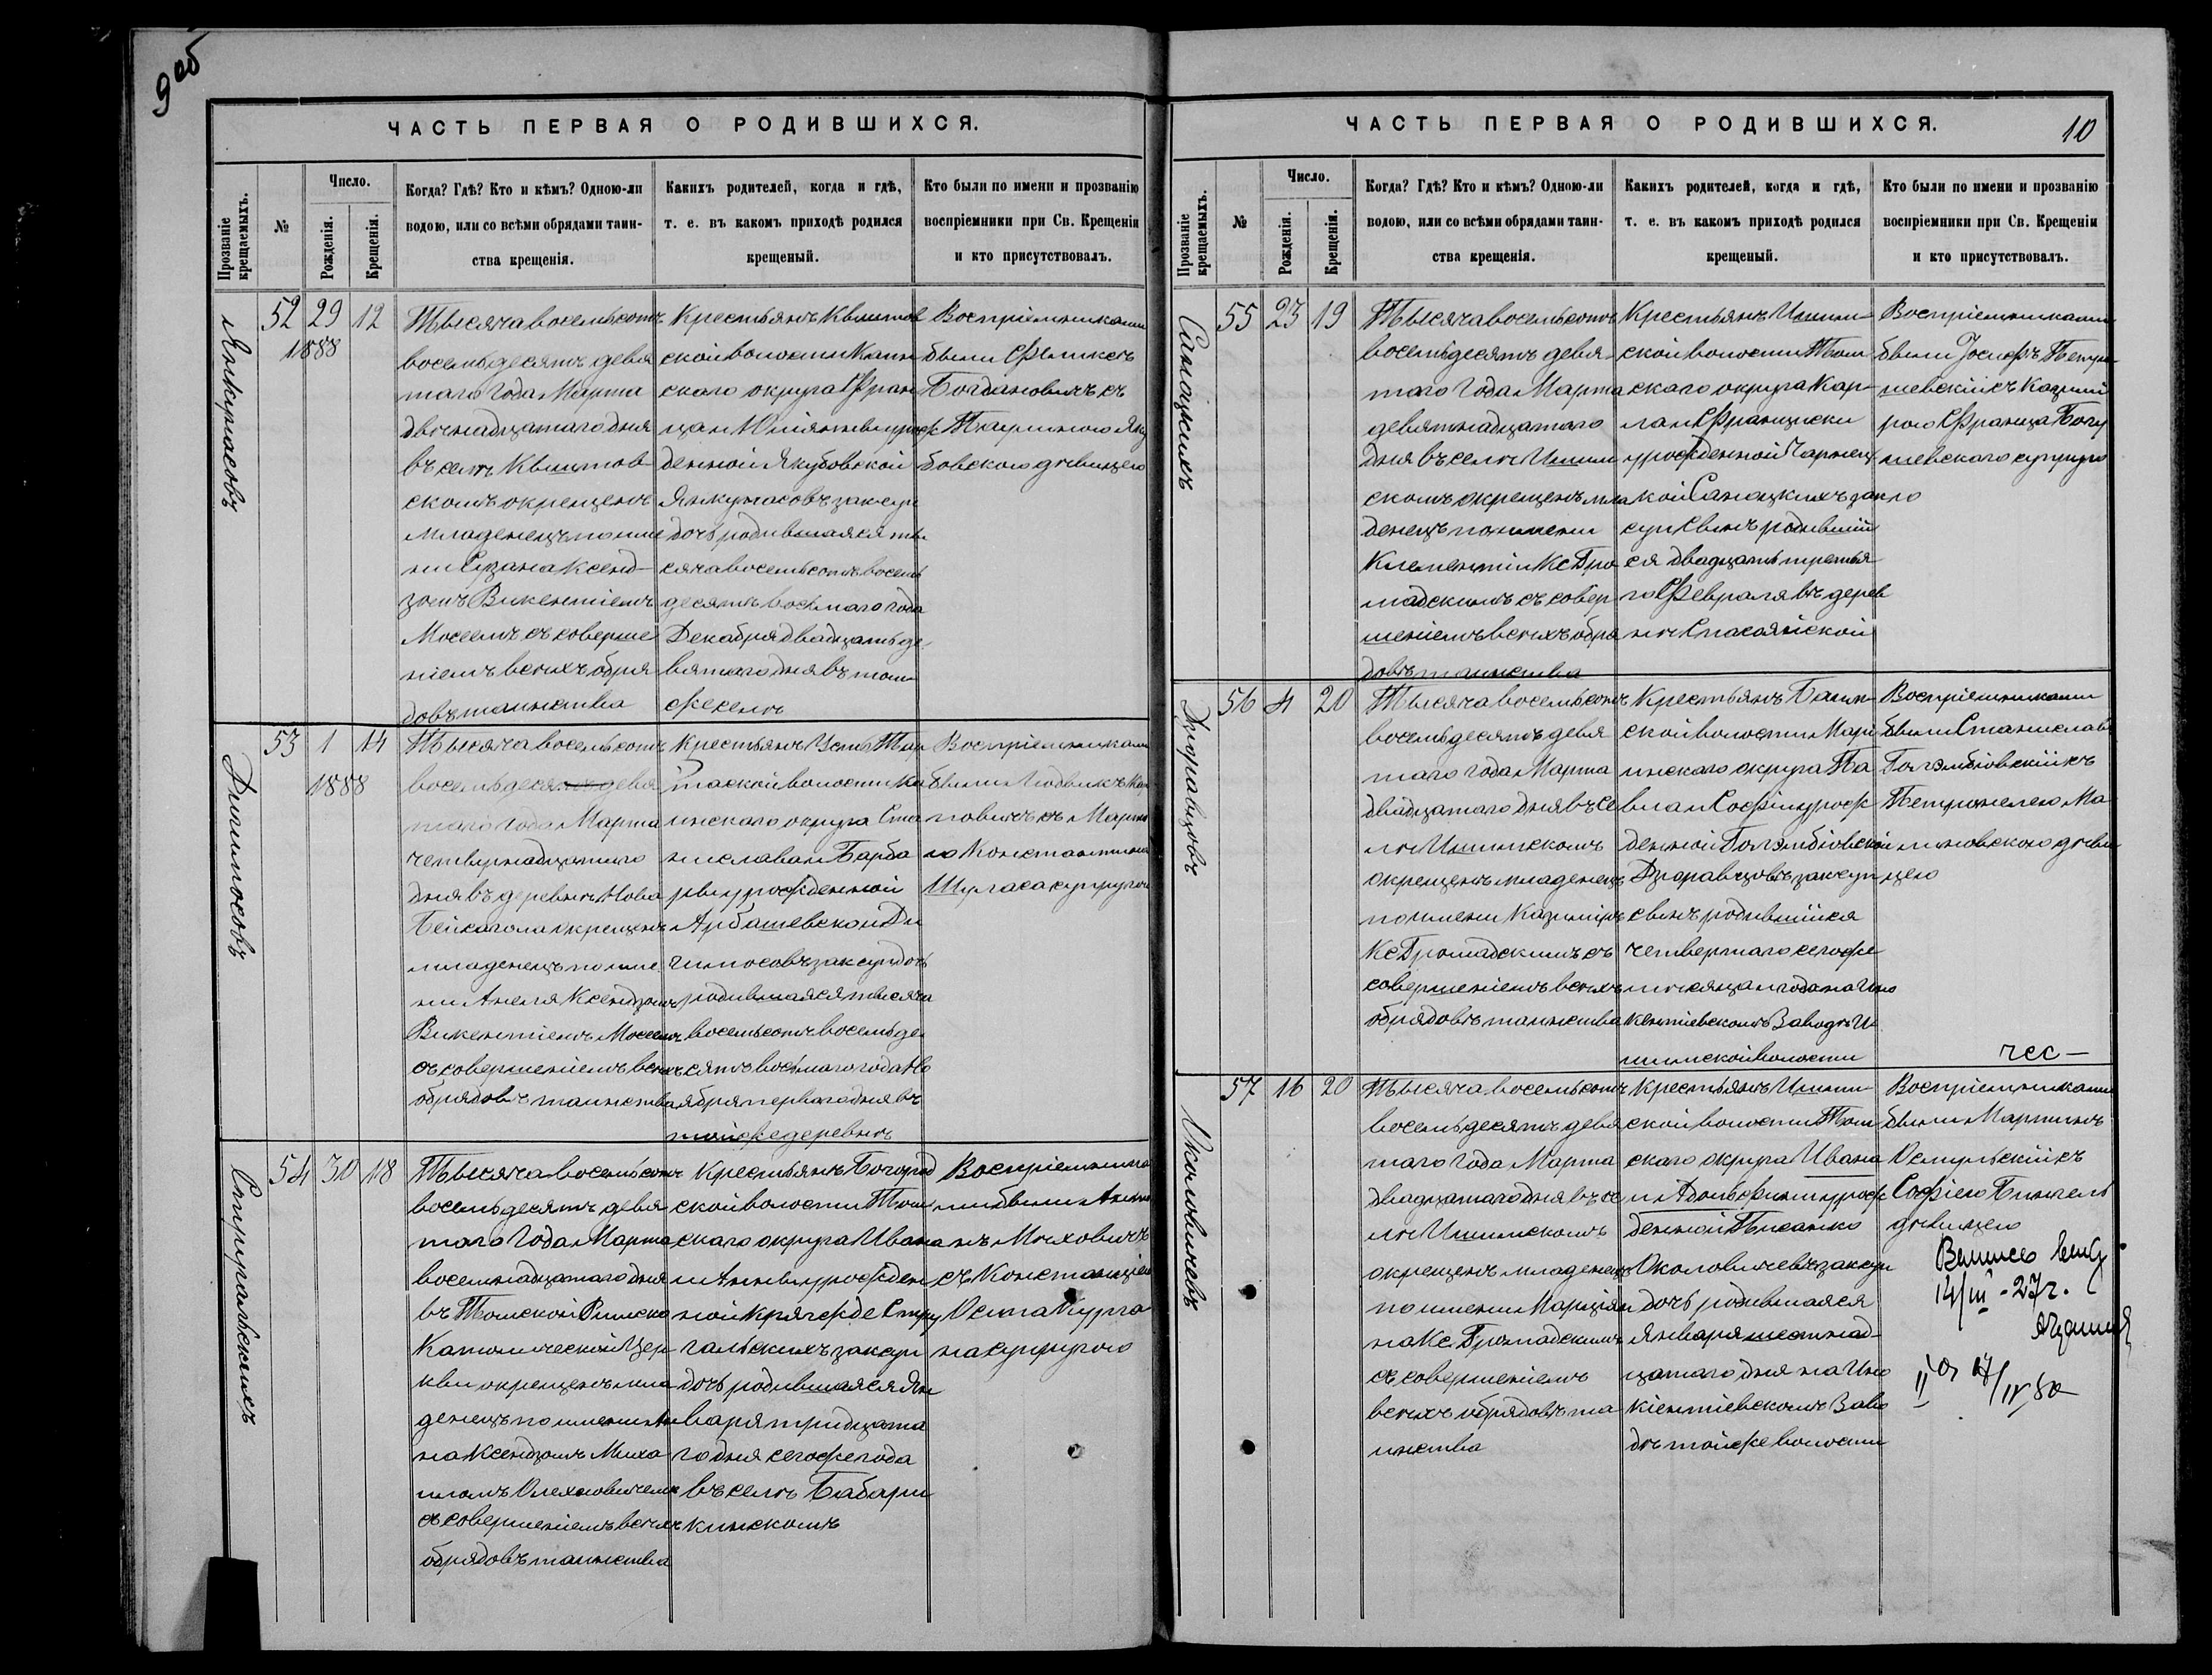 9 об
ЧАСТЬ ПЕРВАЯ О РОДИВШИХСЯ.
Прозваніе крещаемыхъ.
№
Число.
Рожденія.
Крещенія.
Когда? Гдѣ? Кто и кѣмъ? Одною-ли
водою, или со всѣми обрядами таин-
ства крещенія.
Какихъ родителей, когда и гдѣ,
т. е. въ какомъ приходѣ родился
крещеный.
Кто были по имени и прозванію
воспріемники при Св. Крещеніи
и кто присутствовалъ.
Янкунасовъ
52 29 12
1888
Тысяча восемьсотъ
восемьдесятъ девя
таго года Марта
двѣнадцатаго дня
въ селѣ Квитов-
скомъ окрещенъ
младенецъ по име
ни Сузана Ксенд-
зомъ Викентіемъ
Моселъ съ соверше
ніемъ всѣхъ обря
довъ таинства
Крестьянъ Квитов
ской волости Каин
скаго округа Фран
ца и Юліянны урож
денной Якубовской
Янкунасовъ зак суп
дочь родившаяся ты
сяча восемьсотъ восемь
десятъ восьмаго года
Декабря двадцать де
вятаго дня въ том
же селѣ
Воспріемниками
были Феликсъ
Богдановичъ съ
Паулиною Яку
бовскою дѣвицею
53 1 14
1888
Тысяча восемьсотъ
восемьдесятъ девя
таго года Марта
четырнадцатаго
дня въ деревнѣ Нова
окрещенъ
младенецъ по име
ни Анеля Ксендзомъ
Викентіемъ Моселъ
съ совершеніемъ всѣхъ
обрядовъ таинства
Крестьянъ Усть Тар
таской волости Ка
инскаго округа Ста
нислава и Барба
ры урожденной
Арбашевской
зак суп дочь
родившаяся тысяча
восемьсотъ восемьде
сятъ восьмаго года Но
ября перваго дня въ
той же деревнѣ
Воспріемниками
были Людвикъ
повичъ съ
ю Константина
супругою
54 30 18
Тысяча восемьсотъ
восемьдесятъ девя
таго года Марта
восемнадцатаго дня
въ Томской Римско
Католической Цер
кви окрещенъ мла
денецъ по имени Ан
на Ксендзомъ Миха
иломъ Олехновичемъ
съ совершеніемъ всѣхъ
обрядовъ таинства
Крестьянъ Богород
ской волости Том
скаго округа Ивана
и Анны урожден
ной Кряжде Стру
гальскихъ зак суп
дочь родившаяся Ян
варя тридцата
го дня сего же года
въ селѣ Бабары
кинскомъ
Воспріемника
ми были Анто
нъ Мѣховичъ
съ Констанціею
Осипа
на супругою
Стругальскихъ
ЧАСТЬ ПЕРВАЯ О РОДИВШИХСЯ.
10
Прозваніе крещаемыхъ.
№
Число.
Рожденія.
Крещенія.
Когда? Гдѣ? Кто и кѣмъ? Одною-ли
водою, или со всѣми обрядами таин-
ства крещенія.
Какихъ родителей, когда и гдѣ,
т. е. въ какомъ приходѣ родился
крещеный.
Кто были по имени и прозванію
воспріемники при Св. Крещеніи
и кто присутствовалъ.
Саноцкихъ
55 23 19
Тысяча восемьсотъ
восемьдесятъ девя-
таго года Марта
девятнадцатаго
дня въ селѣ Ишим
скомъ окрещенъ мла
денецъ по имени
Клементій Кс Гро
мадскимъ съ совер
шеніемъ всѣхъ обря
довъ таинства
Крестьянъ Ишим
ской волости Том
скаго округа Кар-
ла и Франциски
урожденной Чарнец
кой Саноцкихъ зако
суп сынъ родившій
ся двадцать третья
го Февраля въ дерев
нѣ Спасаяйской
Воспріемниками
были Іосифъ Петру
шевскій съ Казими
рою Франца Богу
шевскаго супруго
ю
Дзюравцовъ
56 4 20
Тысяча восемьсотъ
восемьдесятъ девя
таго года Марта
двадцатаго дня въ се
лѣ Ишимскомъ
окрещенъ младенецъ
по имени Казиміръ
Кс Громадскимъ съ
совершеніемъ всѣхъ
обрядовъ таинства
Крестьянъ Баим-
ской волости Марі
инскаго округа Па
вла и Софіи урож
денной Голэмбіовской
Дзюравцовъ зак суп
сынъ родившійся
четвертаго сего же
мѣсяца и года на Ино
кентіевскомъ Заводѣ И
шимской волости
Воспріемниками
были Станиславъ
Голэмбіовскій съ
Петронелею Ма
линовскою дѣви
цею
чес-
Околовичевъ
57 16 20
Тысяча восемьсотъ
восемьдесятъ девя
таго года Марта
двадцатаго дня въ се
лѣ Ишимскомъ
окрещенъ младенецъ
по имени Марціан
на Кс Громадскимъ
съ совершеніемъ
всѣхъ обрядовъ та
инства
Крестьянъ Ишим
ской волости Том
скаго округа Ивана
и Адольфины урож
денной Писанко
Околовичевъ зак суп
дочь родившаяся
Января шестнад-
цатаго дня на Ино
кіентіевскомъ Заво
дѣ той же волости
Воспріемниками
были Мартинъ
Осмульскій съ
Софіею Бингель
дѣвицею
14/III - 27 г.